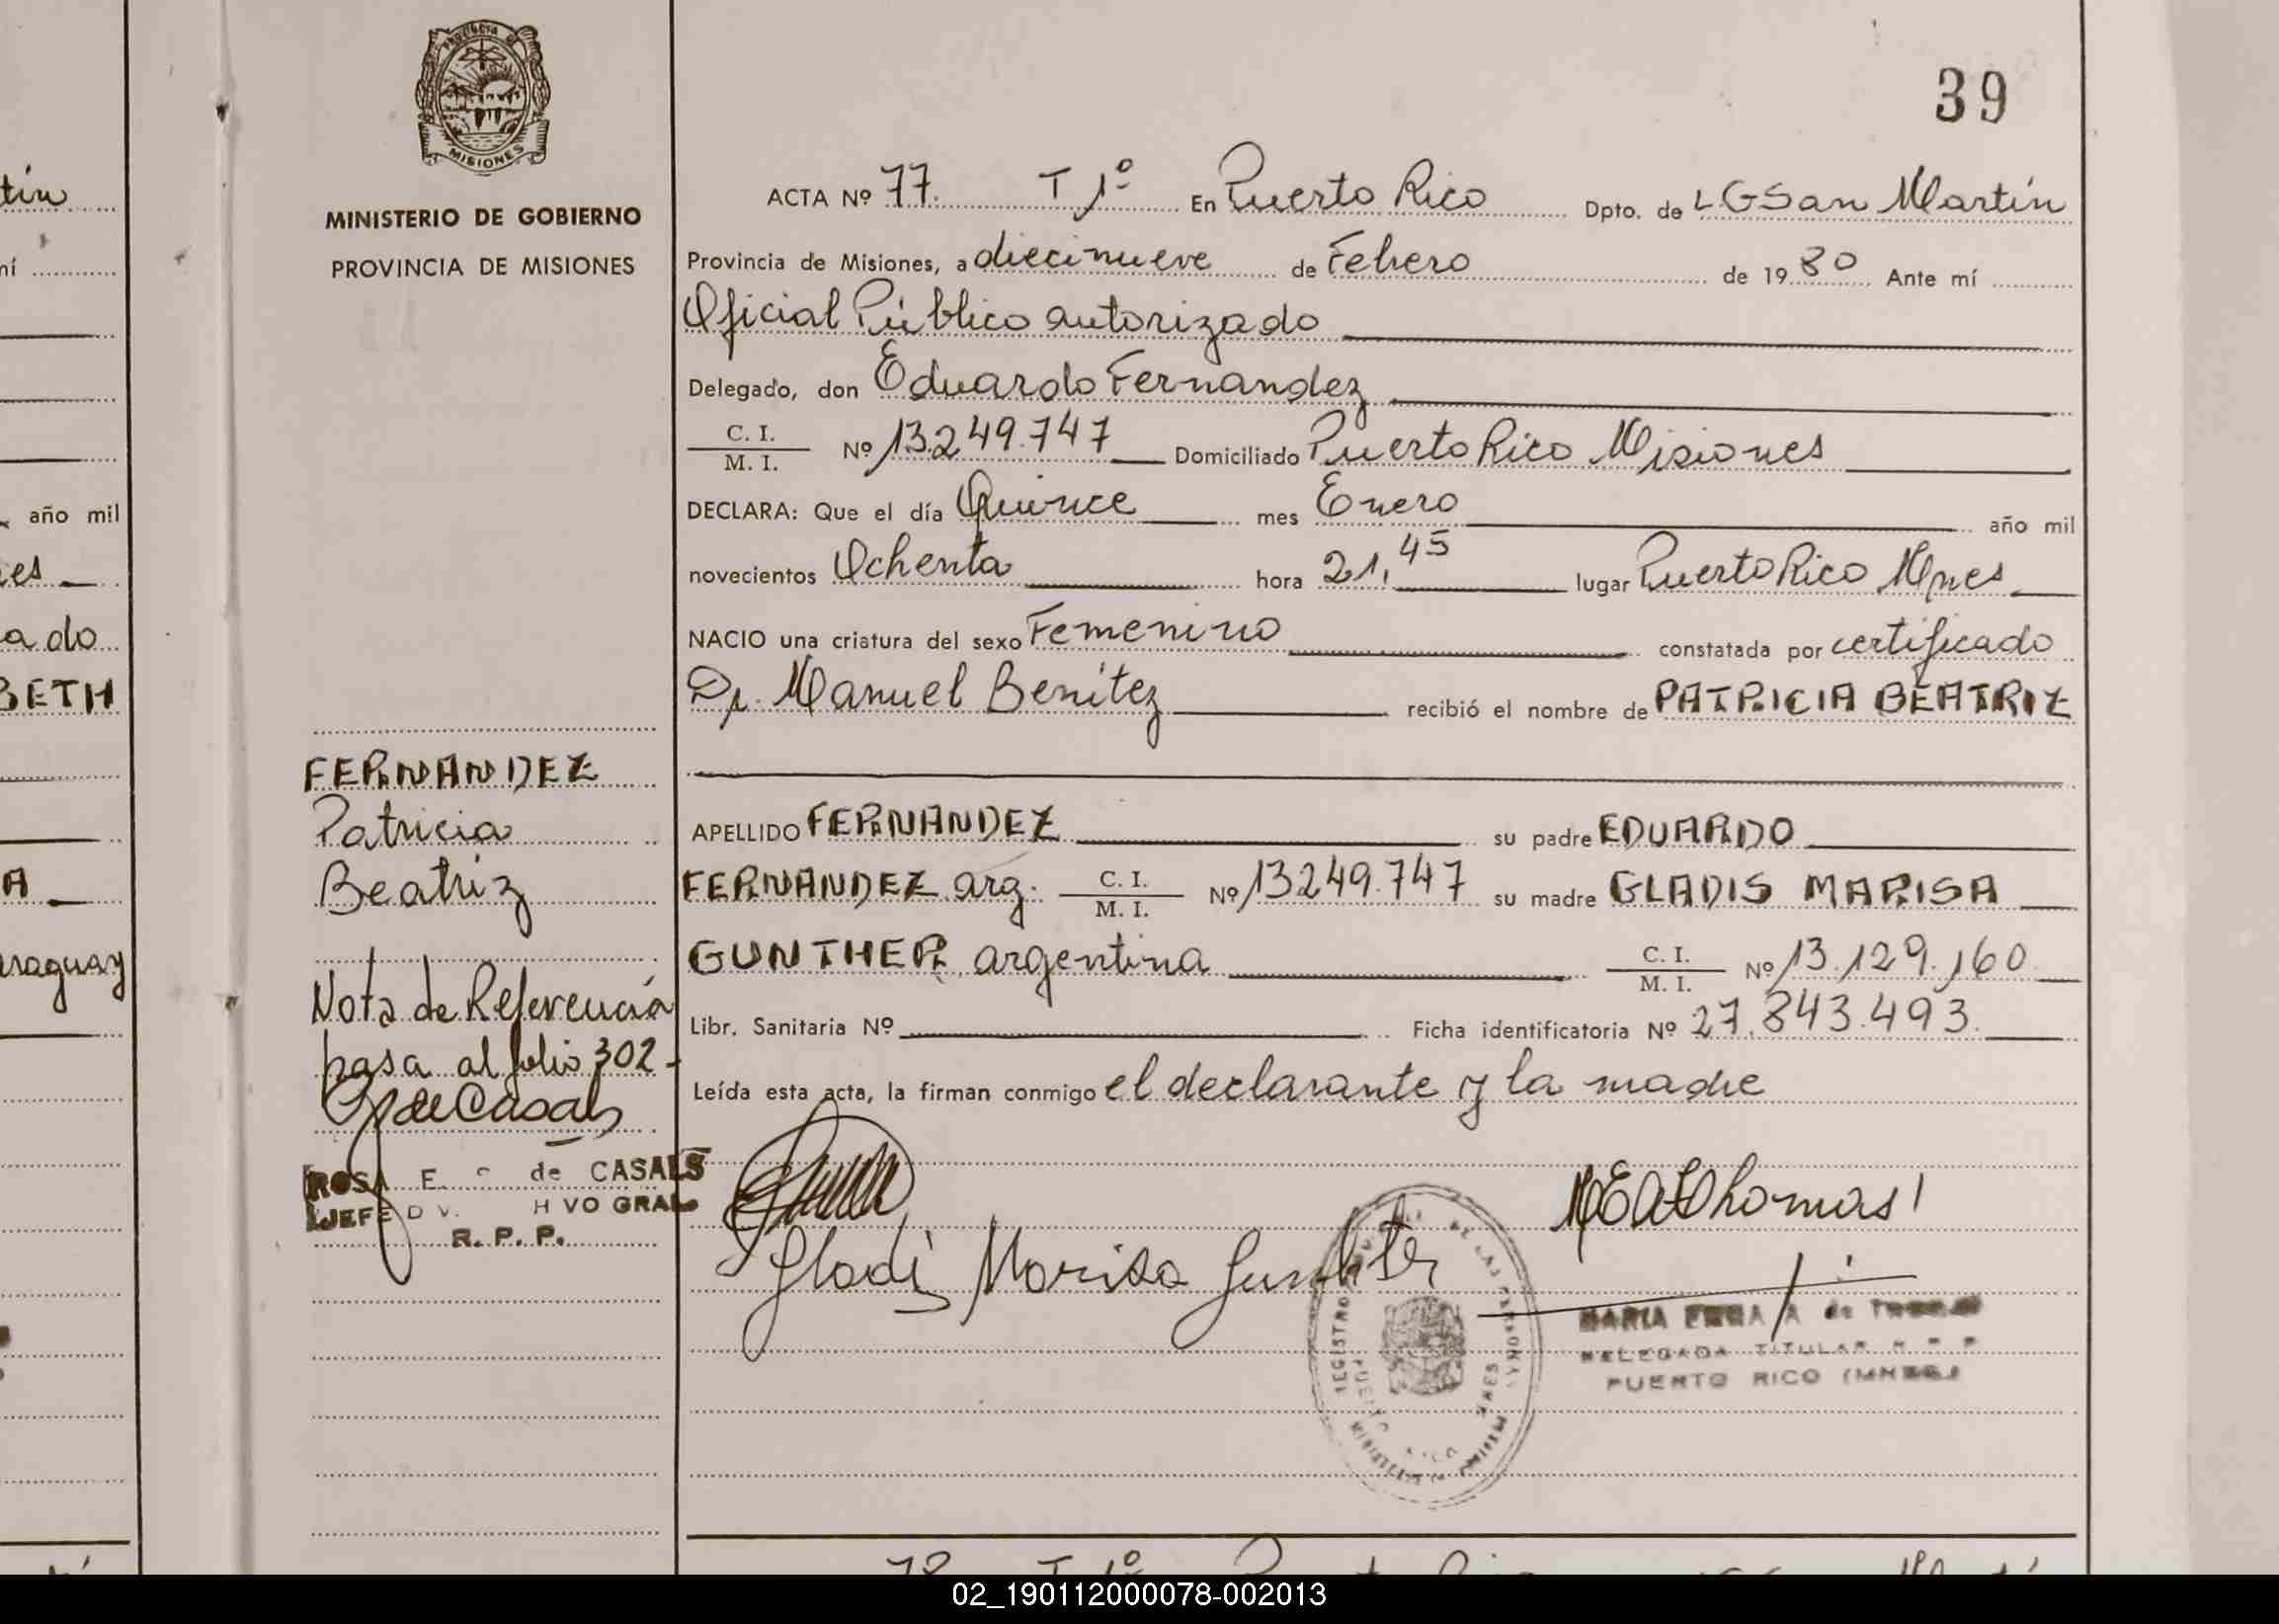 Provincia de
MISIONES
MINISTERIO DE GOBIERNO
PROVINCIA DE MISIONES
39
ACTA Nº 77. T 1º En Puerto Rico Dpto. de LGSan Martín
Provincia de Misiones, a diecinueve de Febrero de 1980 Ante mí
Oficial Público autorizado
Delegado, don Eduardo Fernandez
C. I.
M. I. Nº 13.249.747 Domiciliado Puerto Rico Misiones
DECLARA: Que el día Quince mes Enero año mil
novecientos Ochenta hora 21,45 lugar Puerto Rico Mnes
NACIO una criatura del sexo Femenino constatada por certificado
Dr. Manuel Benítez recibió el nombre de PATRICIA BEATRIZ
APELLIDO FERNANDEZ su padre EDUARDO
FERNANDEZ arg. C. I.
M. I. Nº 13249.747 su madre GLADIS MARISA
GUNTHER argentina C. I.
M. I. Nº 13.129.160
Libr. Sanitaria Nº Ficha identificatoria Nº 27.843.493.
Leída esta acta, la firman conmigo el declarante y la madre
Gladis Marisa Gunther
MARIA de
DELEGADA TITULAR
PUERTO RICO (MNES.)
REGISTRO DE LAS PERSONAS
FERNANDEZ
Patricia
Beatriz
Nota de Referencia
pasa al folio 302-
de Casals
ROSA E. de CASALS
JEFE
R. P. P.
tín
ní
año mil
es
ado
BETH
A
araguay
78 T 1º
02_190112000078-002013